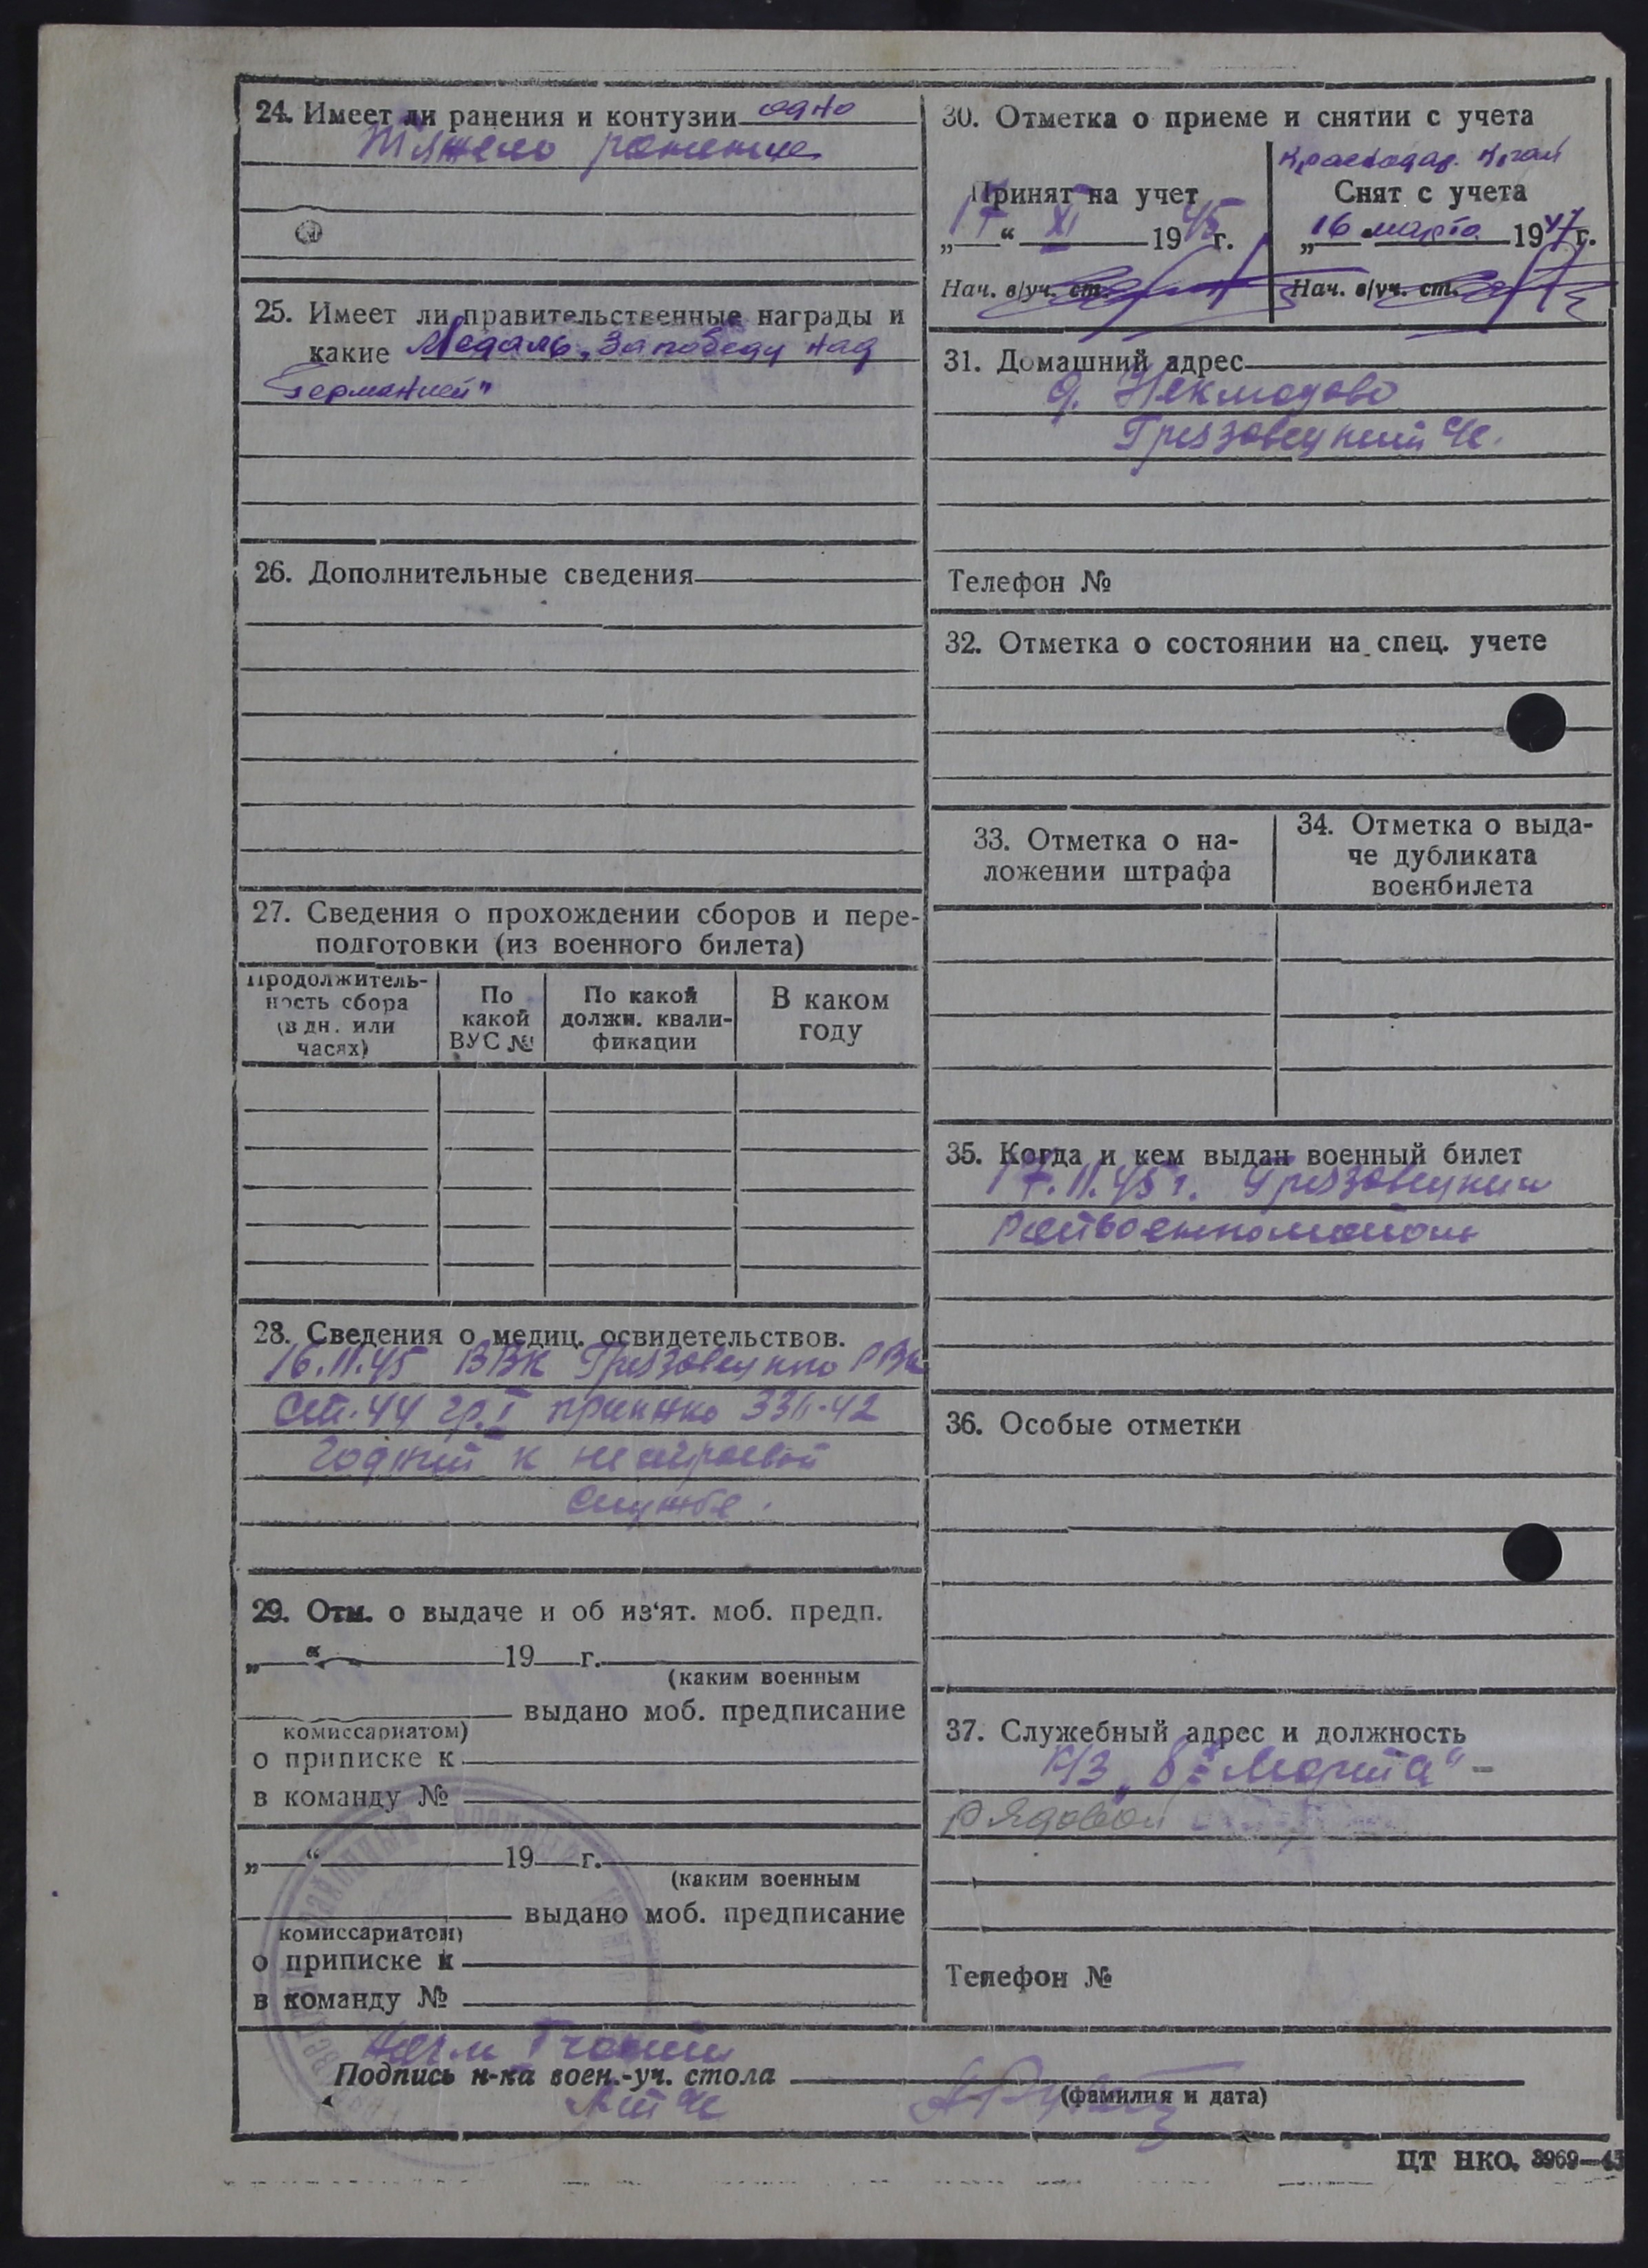 24. Имеет ли ранения и контузии одно
Тяжело ранение
25. Имеет ли правительственные награды и
какие Медаль „За победу над
Германией"
26. Дополнительные сведения
27. Сведения о прохождении сборов и пере-
подготовки (из военного билета)
Продолжитель-
ность сбора
(в дн. или
часях)
По
какой
ВУС №
По какой
должн. квали-
фикации
В каком
году
28. Сведения о медиц. освидетельствов.
16.11.45 ВВК Грязовецкого РВК
Ст. 44 гр. I приказ 336-42
Годный к нестроевой
службе.
29. Отм. о выдаче и об из‘ят. моб. предп.
„ “ 19 г.
(каким военным
выдано моб. предписание
комиссариатом)
о приписке к
в команду №
„ “ 19 г.
(каким военным
выдано моб. предписание
комиссариатом)
о приписке к
в команду №
30. Отметка о приеме и снятии с учета
Краснодар. Край
Принят на учет
„17“ XI 1945г.
Нач. в/уч. ст.
Снят с учета
„16 марта 1947г.
Нач. в/уч. ст.
31. Домашний адрес
д.
Грязовецкий
Телефон №
32. Отметка о состоянии на спец. учете
33. Отметка о на-
ложении штрафа
34. Отметка о выда-
че дубликата
военбилета
35. Когда и кем выдан военный билет
17.11.45 г. Грязовецким
Райвоенкоматом
36. Особые отметки
37. Служебный адрес и должность
К/З „8е Марта" -
рядовой
Телефон №
Подпись н-ка воен.-уч. стола
(фамилия и дата)
ЦТ НКО. 3969—45